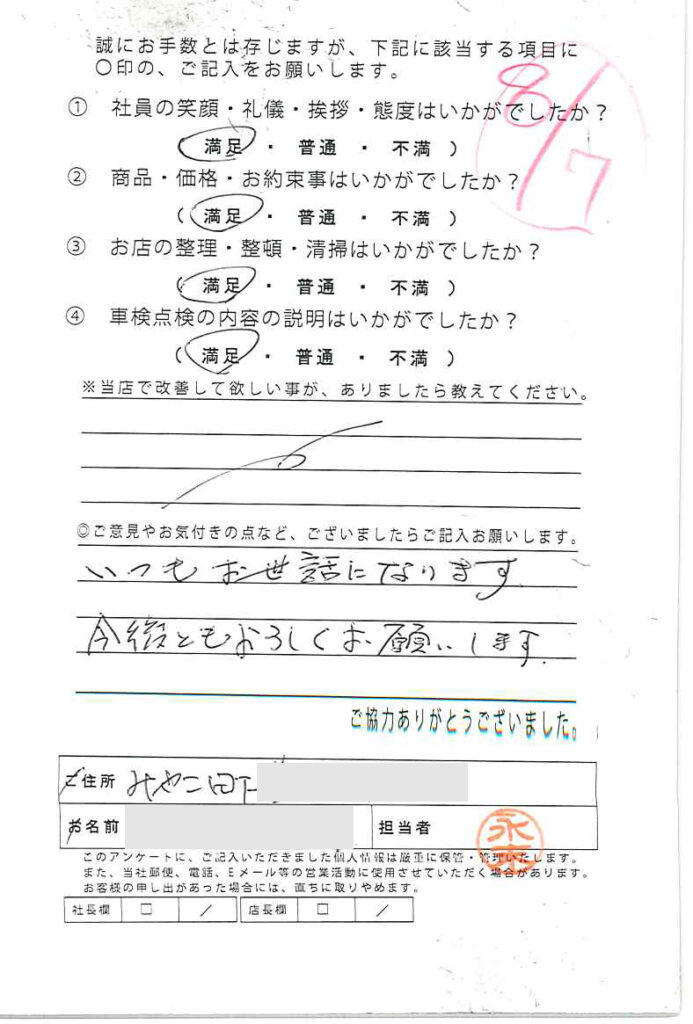 誠にお手数とは存じますが、下記に該当する項目に
〇印の、ご記入をお願いします。
8/7
① 社員の笑顔・礼儀・挨拶・態度はいかがでしたか？
（ 満足 ・ 普通 ・ 不満 ）
② 商品・価格・お約束事はいかがでしたか？
（ 満足 ・ 普通 ・ 不満 ）
③ お店の整理・整頓・清掃はいかがでしたか？
（ 満足 ・ 普通 ・ 不満 ）
④ 車検点検の内容の説明はいかがでしたか？
（ 満足 ・ 普通 ・ 不満 ）
※当店で改善して欲しい事が、ありましたら教えてください。
◎ご意見やお気付きの点など、ございましたらご記入お願いします。
いつもお世話になります
今後ともよろしくお願いします.
ご協力ありがとうございました。
ご住所
お名前 担当者
このアンケートに、ご記入いただきました個人情報は厳重に保管・管理いたします。
また、当社郵便、電話、Eメール等の営業活動に使用させていただく場合があります。
お客様の申し出があった場合には、直ちに取りやめます。
社長欄 □ ／ 店長欄 □ ／